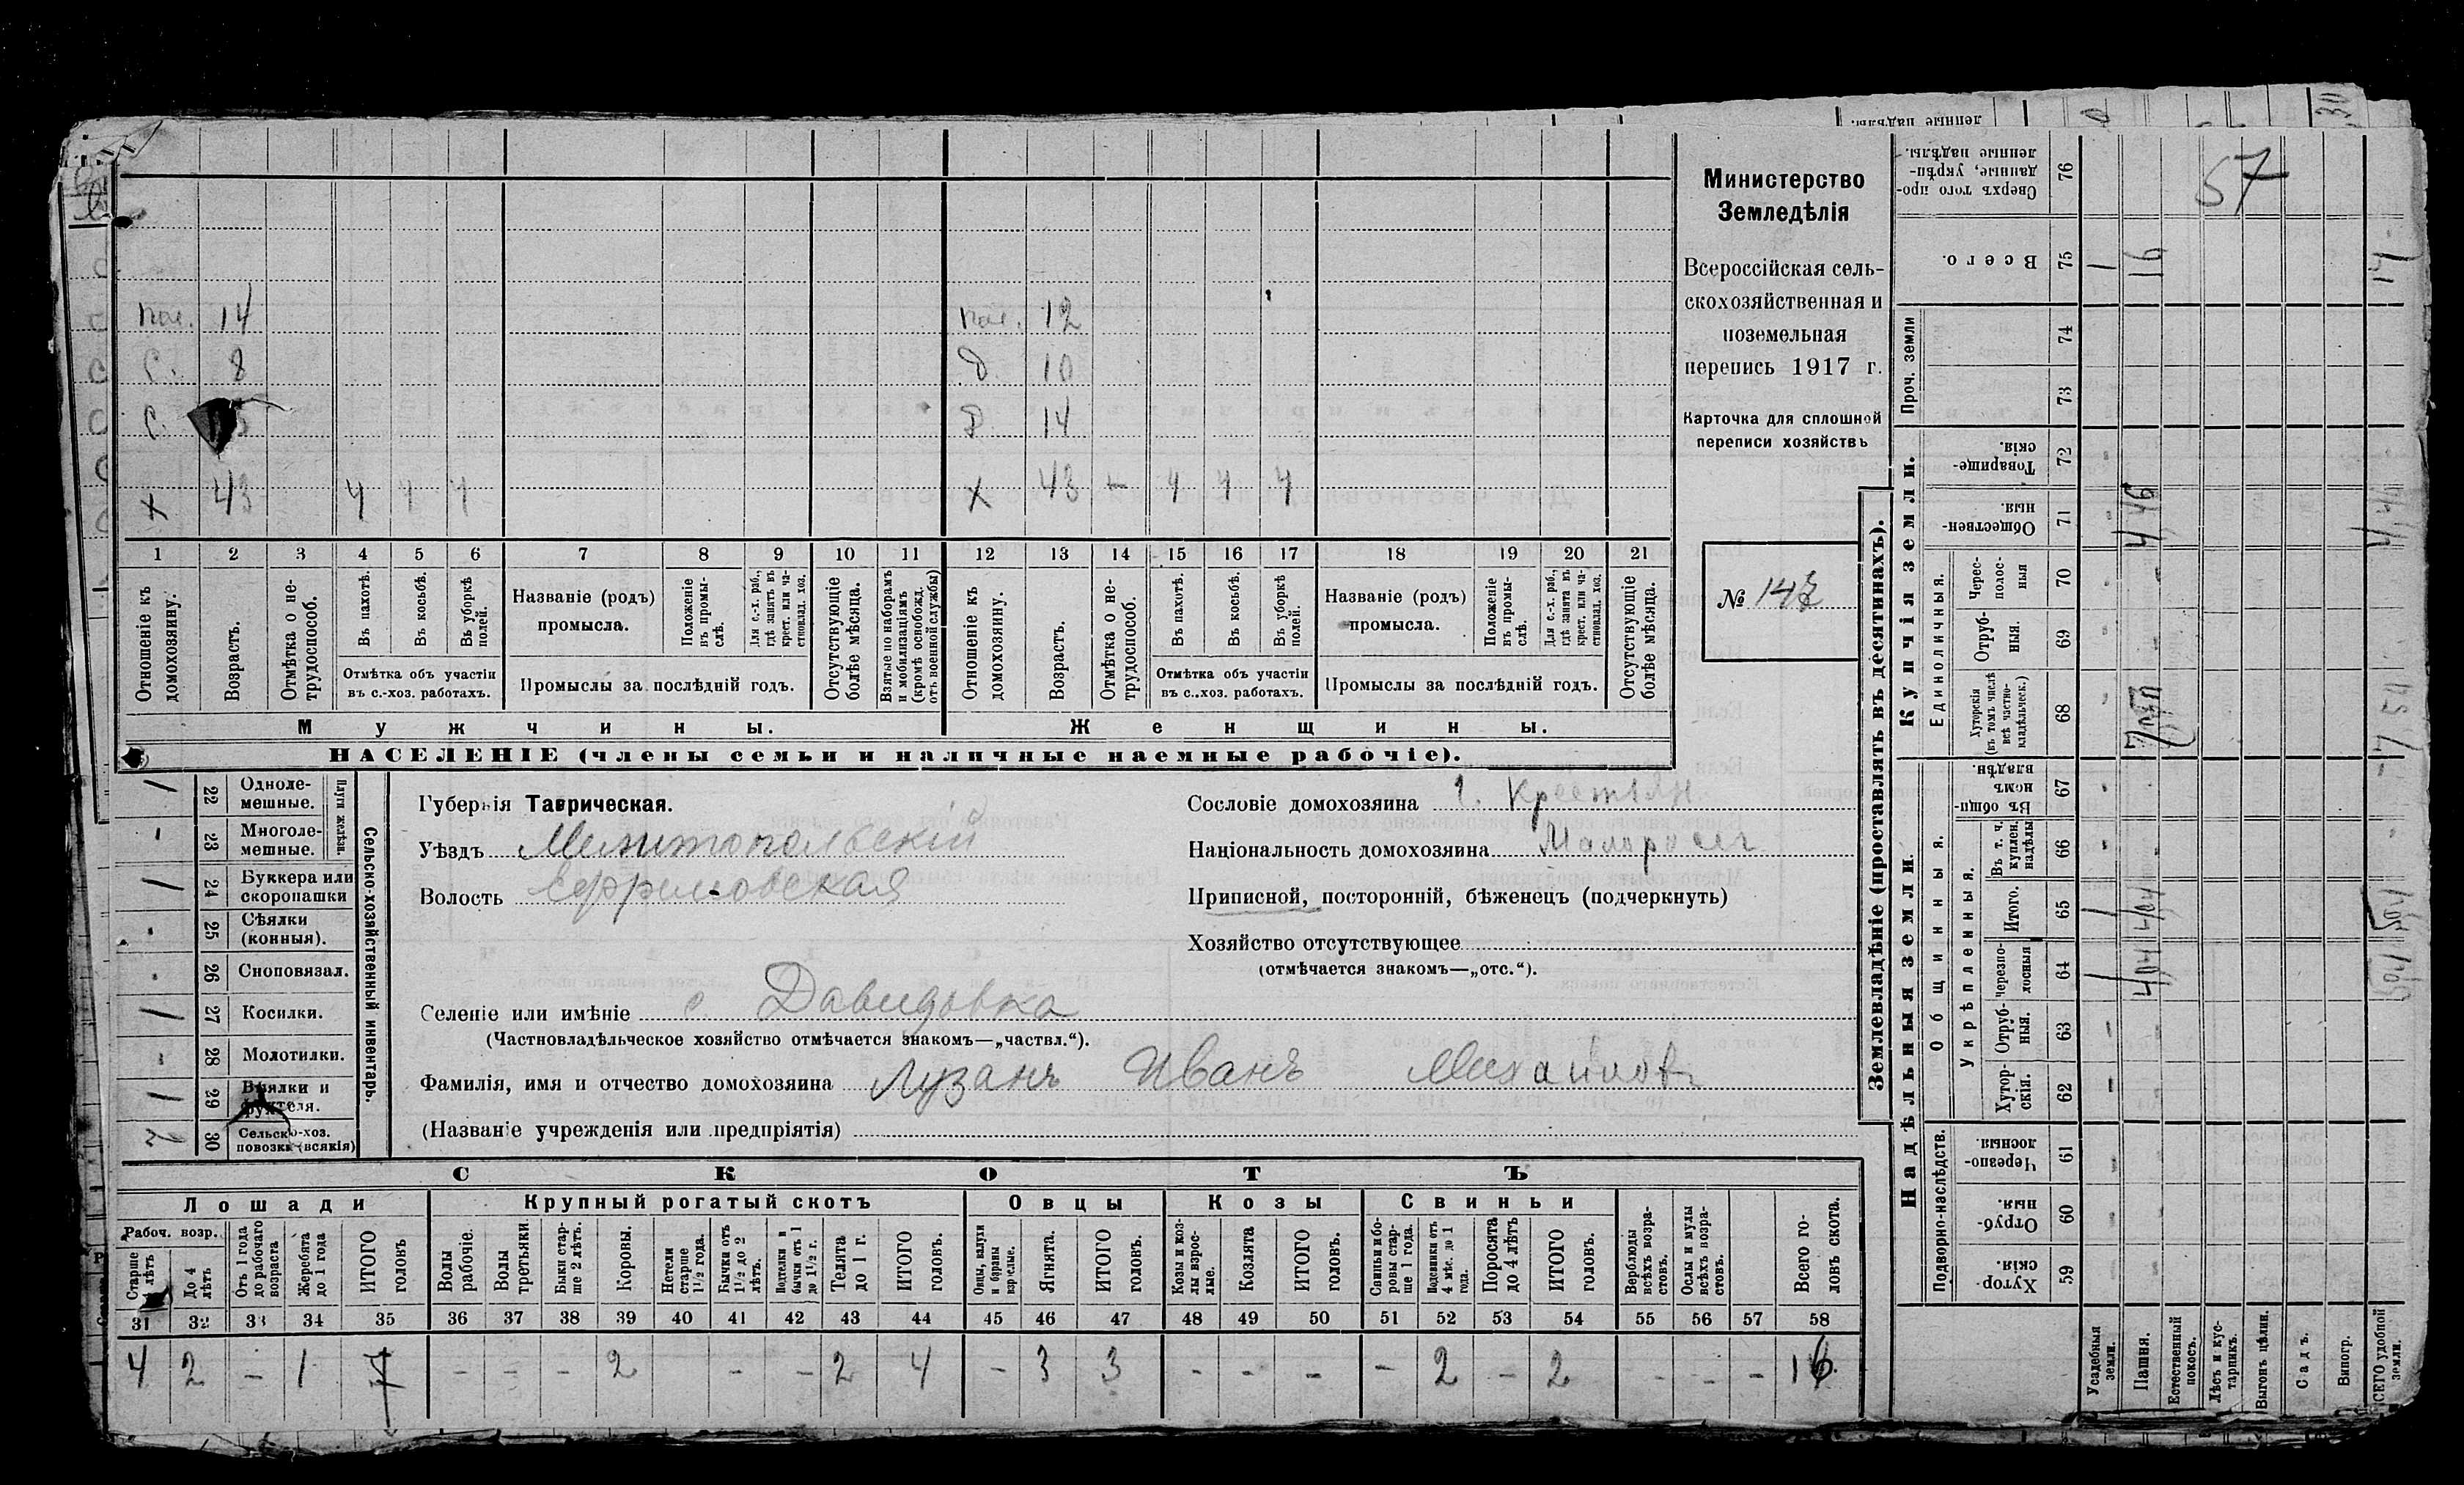 пол. 14 пол. 12
с. 8 д. 10
с. 5 д 14
х 43 ч ч ч х 43 – ч ч ч
1 2 3 4 5 6 7 8 9 10 11 12 13 14 15 16 17 18 19 20 21
Отношеніе къ домохозяину.
Возрастъ.
Отмѣтка о не-трудоспособ.
Въ пахотѣ.
Въ косьбѣ.
Въ уборкѣ полей.
Отмѣтка объ участіи въ с.-хоз. работахъ.
Названіе (родъ) промысла.
Положеніе въ промы-слѣ.
Для с.-х. раб., гдѣ занятъ въ крест. или ча-стновлад. хоз.
Промыслы за послѣдній годъ.
Отсутствующіе болѣе мѣсяца.
Взятые по наборамъ и мобилизаціямъ (кромѣ освобожд. отъ военной службы)
Отношеніе къ домохозяину.
Возрастъ.
Отмѣтка о не-трудоспособ.
Въ пахотѣ.
Въ косьбѣ.
Въ уборкѣ полей.
Отмѣтка объ участіи въ с..хоз. работахъ.
Названіе (родъ) промысла.
Положеніе въ промы-слѣ.
Для с.-х. раб., гдѣ занята въ крест. или ча-стновлад. хоз.
Промыслы за послѣдній годъ.
Отсутствующіе болѣе мѣсяца.
Мужчины. Женщины.
НАСЕЛЕНІЕ (члены семьи и наличные наемные рабочіе).
Министерство
Земледѣлія
Всероссійская сель-
скохозяйственная и
поземельная
перепись 1917 г.
Карточка для сплошной
переписи хозяйствъ
№ 147
1 22 Одноле-мешные.
- 23 Многоле-мешные.
Плуги желѣзн.
1 24 Буккера или скоропашки
- 25 Сѣялки (конныя).
- 26 Сноповязал.
1 27 Косилки.
- 28 Молотилки.
1 29 Вѣялки и
30 Сельско-хоз. повозки (всякія)
Сельско-хозяйственный инвентарь.
Губернія Таврическая.
Уѣздъ Мелитопольскій
Волость Ефремовская
Селеніе или имѣніе с. Давидовка
(Частновладѣльческое хозяйство отмѣчается знакомъ—„частвл.“).
Фамилія, имя и отчество домохозяина Лузанъ Иванъ Михайловъ
(Названіе учрежденія или предпріятія)
Сословіе домохозяина Крестьян.
Національность домохозяина Малоросъ
Приписной, посторонній, бѣженецъ (подчеркнуть)
Хозяйство отсутствующее
(отмѣчается знакомъ—„отс.“).
СКОТЪ
Лошади Крупный рогатый скотъ Овцы Козы Свиньи
Рабоч. возр.
Старше лѣтъ
До 4 лѣтъ
Отъ 1 года до рабочаго возраста
Жеребята до 1 года
ИТОГО головъ
Волы рабочіе.
Волы третьяки.
Быки стар-ше 2 лѣтъ.
Коровы.
Нетели старше 1½ года.
Бычки отъ 1½ до 2 лѣтъ.
Подтелки и бычки отъ 1 до 1½ г.
Телята до 1 г.
ИТОГО головъ.
Овцы, валухи и бараны взрослые.
Ягнята.
ИТОГО головъ.
Козы и коз-лы взрос-лые.
Козлята
ИТОГО головъ.
Свиньи и бо-ровы стар-ше 1 года.
Подсвинки отъ 4 мѣс. до 1 года.
Поросята до 4 лѣтъ
ИТОГО головъ.
Верблюды всѣхъ возра-стовъ.
Ослы и мулы всѣхъ возра-стовъ.
Всего го-ловъ скота.
31 32 33 34 35 36 37 38 39 40 41 42 43 44 45 46 47 48 49 50 51 52 53 54 55 56 57 58
4 2 - 1 7 - - - 2 - - 2 4 - 3 3 - - - - 2 - 2 - - - 16
Землевладѣніе (проставлять въ десятинахъ).
Надѣльныя земли. Купчія земли. Проч. земли
Подворно-наслѣдств. Общинныя. Укрѣпленныя. Единоличныя.
Хутор-скія. 59
Отруб-ныя. 60
Черезпо-лосныя 61
Хутор-скія. 62
Отруб-ныя. 63
Черезпо-лосныя 64
Итого. 65
Въ т. ч. куплен. надѣлы 66
Въ общи-номъ владѣн. 67
Хуторскія (въ томъ числѣ всѣ частно-владѣльческ.) 68
Отруб-ныя. 69
Черес-полос-ныя 70
Обществен-ныя. 71
Товарище-скія. 72
73
74
Всего. 75
Сверхъ того про-данные, укрѣп-ленные надѣлы. 76
57
1 16
4,46
4,04 4,04
Усадебныя земли.
Пашня.
Естественный покосъ.
Лѣсъ и кус-тарникъ.
Выгонъ цѣлин.
Садъ.
Виногр.
ВСЕГО удобной земли.